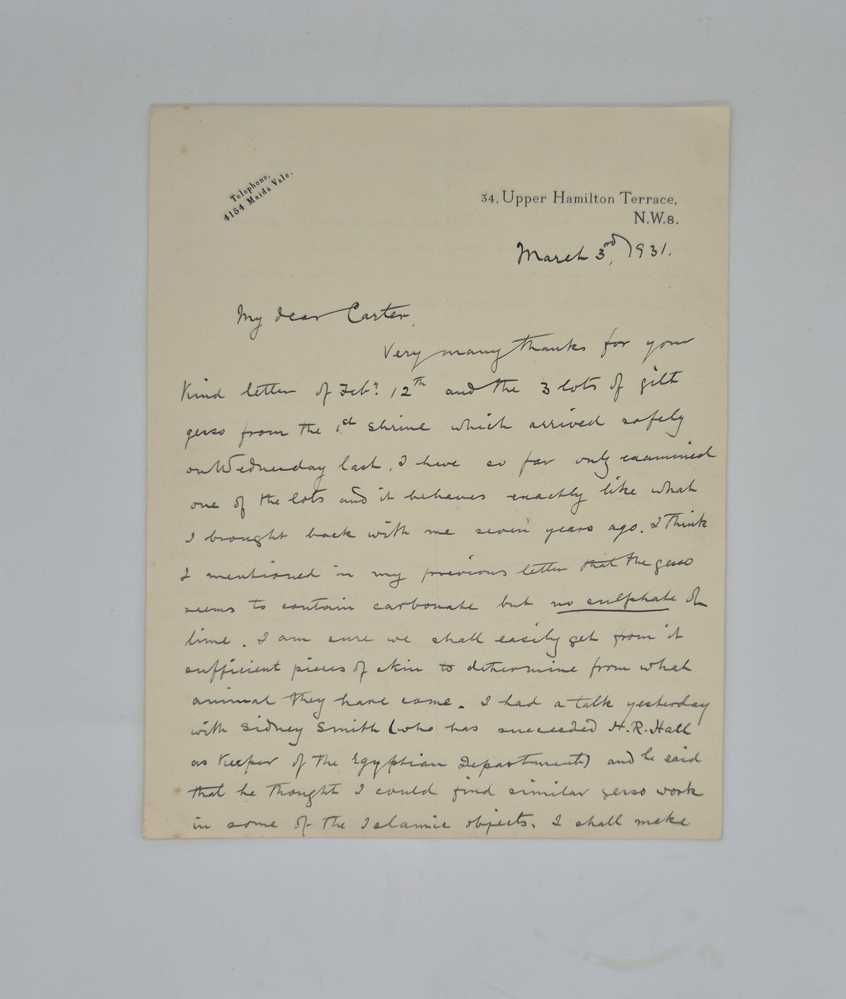 Telephone,
4154 Maida Vale.
34, Upper Hamilton Terrace,
N.W.8.
March 3rd, 1931.
My dear Carter,
Very many thanks for your
kind letter of Feby. 12th and the 3 lots of gilt
gesso from the 1st shrine which arrived safely
on Wednesday last. I have so far only examined
one of the lots and it behaves exactly like what
I brought back with me seven years ago. I think
I mentioned in my previous letter that the gesso
seems to contain carbonate but no sulphate of
lime. I am sure we shall easily get from it
sufficient pieces of skin to determine from what
animal they have come. I had a talk yesterday
with Sidney Smith (who has succeeded H.R. Hall
as Keeper of the Egyptian Department) and he said
that he thought I could find similar gesso work
in some of the Islamic objects. I shall make